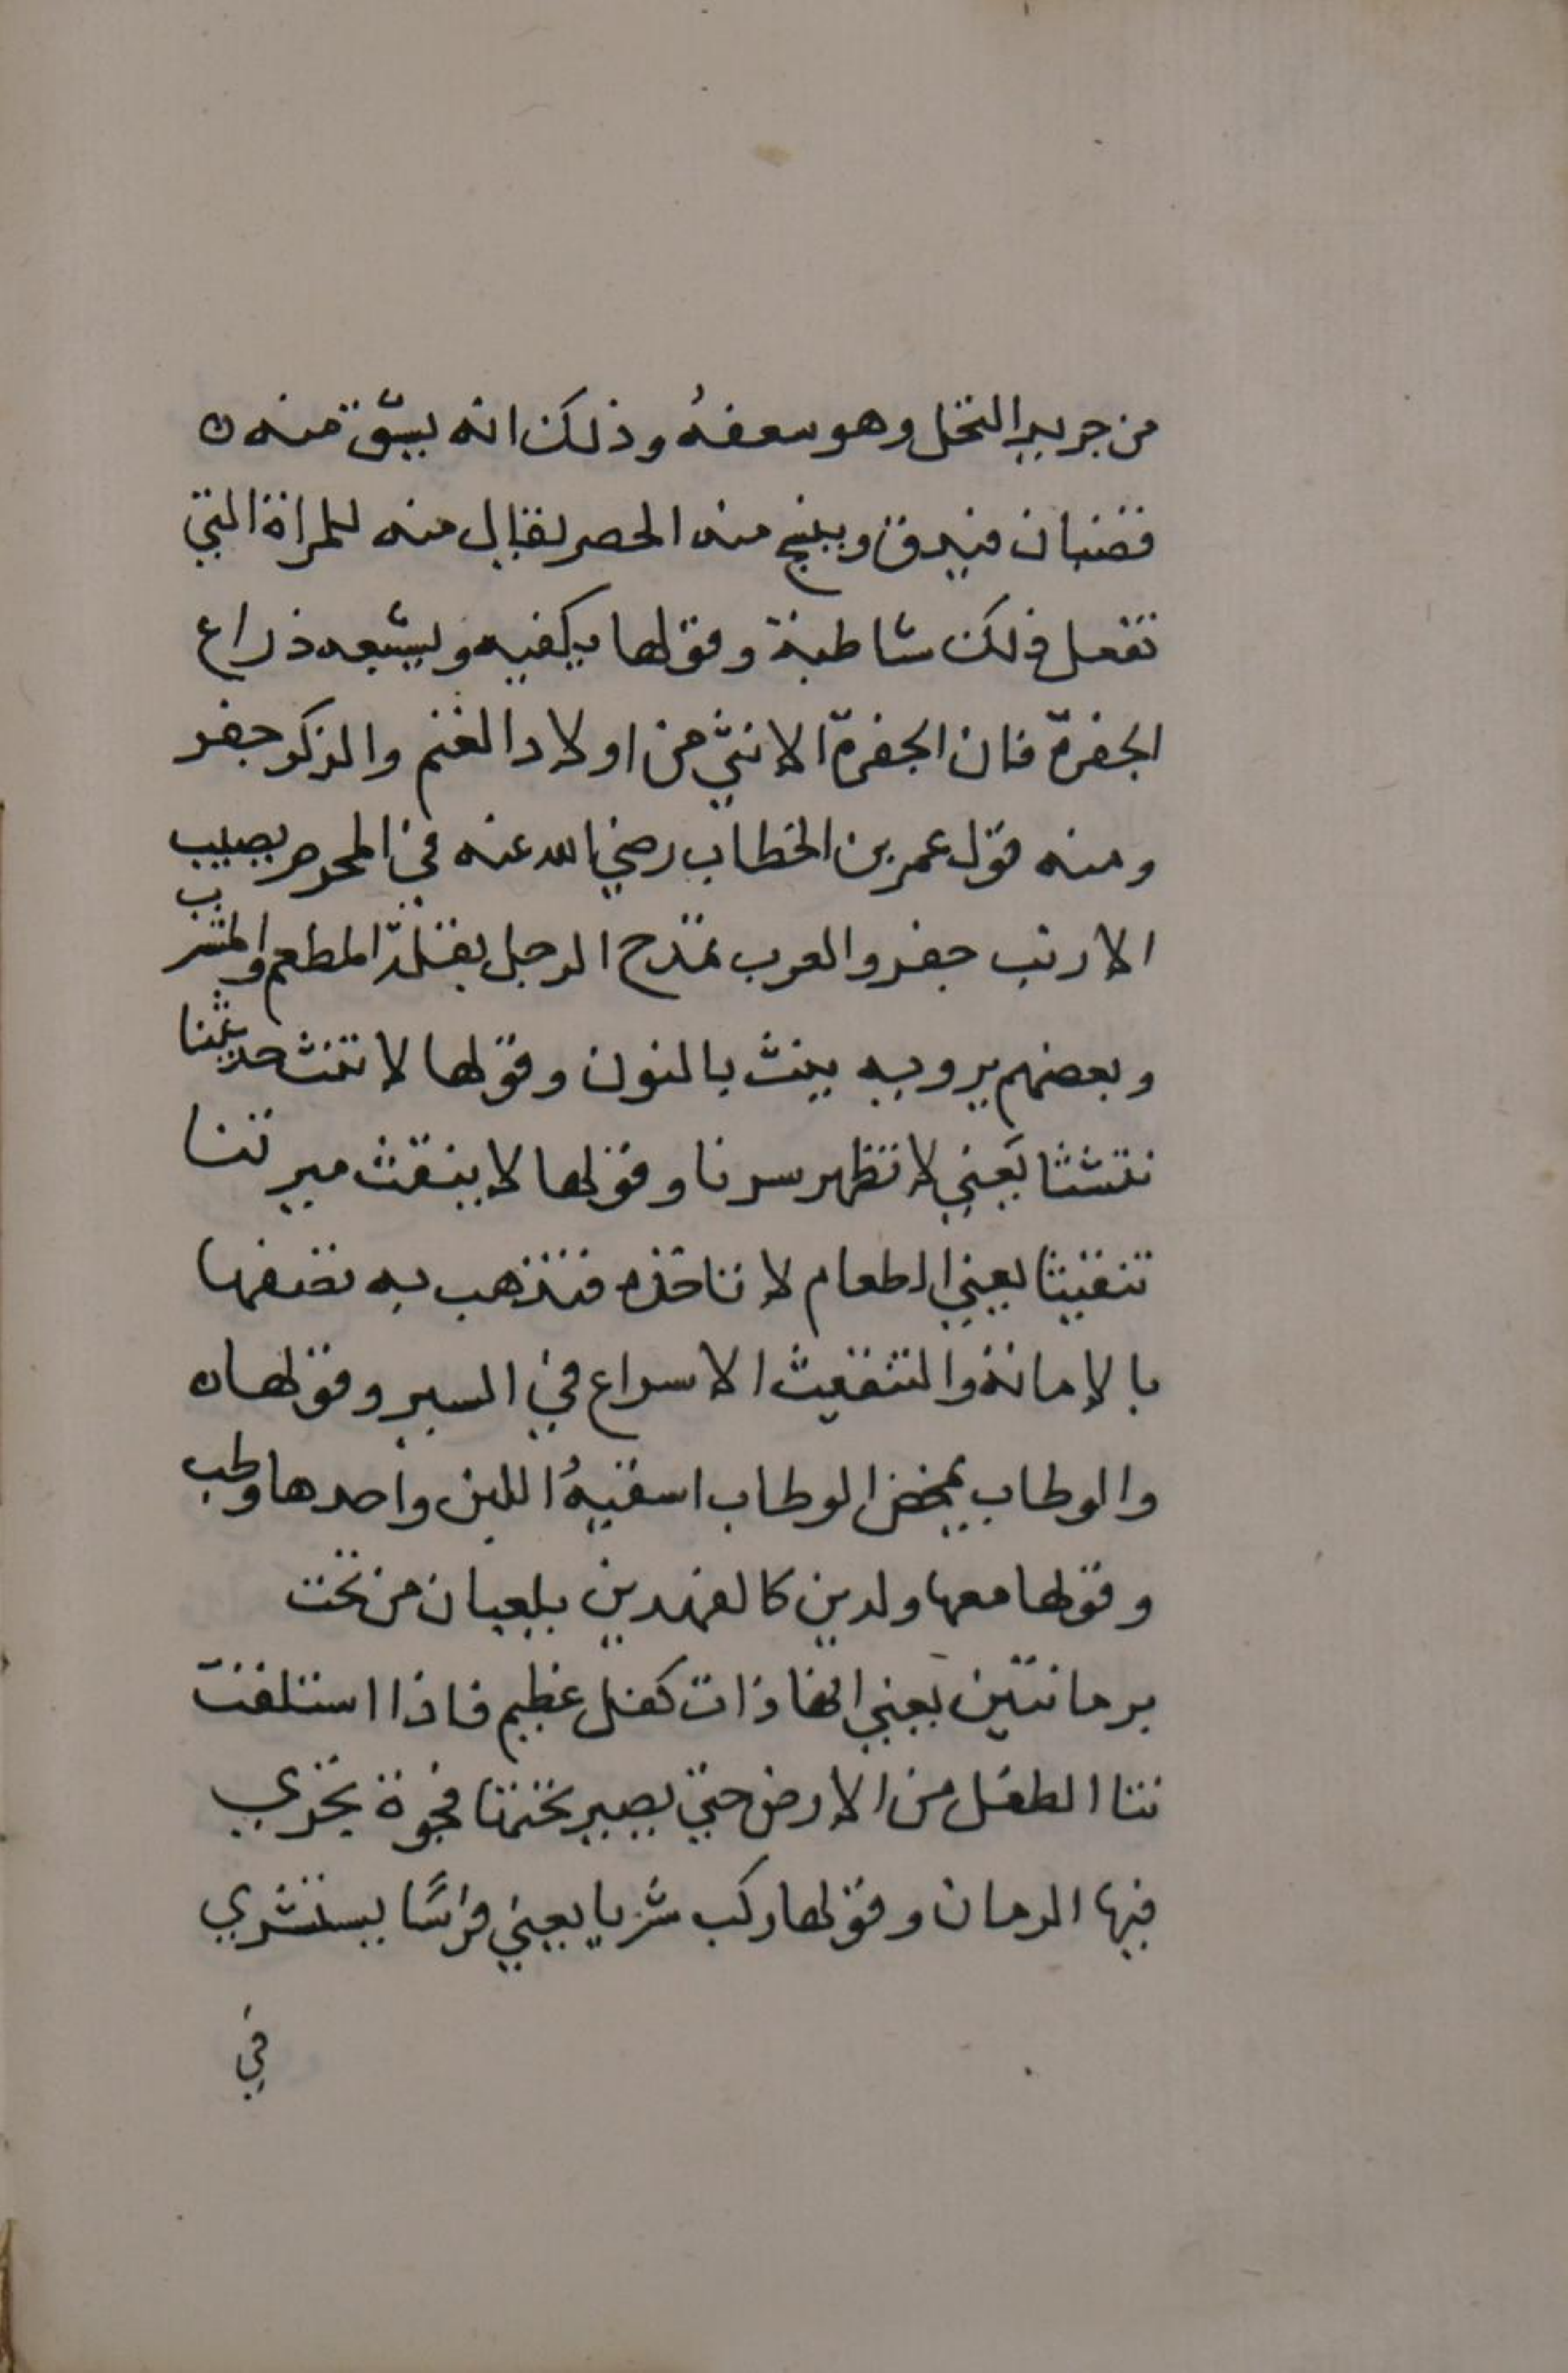 من جريد النخل وهو سعفهُ وذلك انه يشق منه ن
قضبان فيدق وينسج منه الحصر لقبال منه للمراة التي
تفعل ذلك شاطبة وقولها يكفيه ويشبعه ذراع
الجفرة فان الجفرة الانثي من اولاد الغنم والذكر جفر
ومنه قول عمر بن الخطاب رضي الله عنه في المحرم يصيب
الارنب جفر والعرب تمدح الرجل بقلة المطعم والمشرب
وبعضهم يرويه ينث بالنون وقولها لا تنث حديثنا
تنثثا يعني لا تظهر سرنا وقولها لا ينقث ميرتنا
تنقيثا يعني الطعام لا تاخذه فتذهب به تضفها
بالامانة والتنقيث الاسراع في السير وقولها ن
والوطاب تمخض الوطاب اسقيهُ اللبن واحدها وطب
وقولها معها ولدين كالفهدين يلعبان من تحت
برمانتين يعني انها ذات كفل عظيم فاذا استلقت
نتا الطفل من الارض حتي يصير تحتها فجوة تجري
فيها الرمان وقولها ركب شريا يعني فرسًا يستشري
في